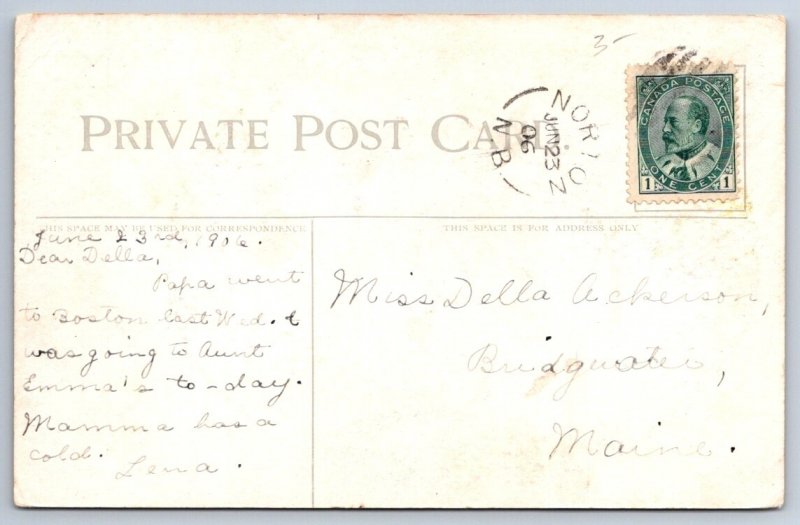 3-
CANADA POSTAGE
1 ONE CENT 1
NORTON
JUN 23
06
N B
PRIVATE POST CARD.
THIS SPACE MAY BE USED FOR CORRESPONDENCE
THIS SPACE IS FOR ADDRESS ONLY
June 23rd, 1906.
Dear Della,
Papa went
to Boston last Wed. &
was going to Aunt
Emma's to-day.
Mamma has a
cold.
Lena.
Miss Della Ackerson,
Bridgwater,
Maine.